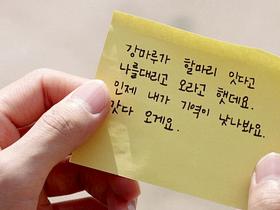 강마루가 할마리 잇다고
나를대리고 오라고 했데요.
인제 내가 기역이 낫나봐요.
갓다 오게요.